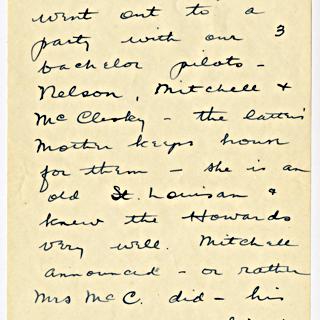 went out to a
party with our 3
bachelor pilots -
Nelson, Mitchell &
McClesky - the latter's
Mother keeps house
for them - she is an
old St. Louisan &
knew the Howards
very well. Mitchell
announced - or rather
Mrs McC. did - his